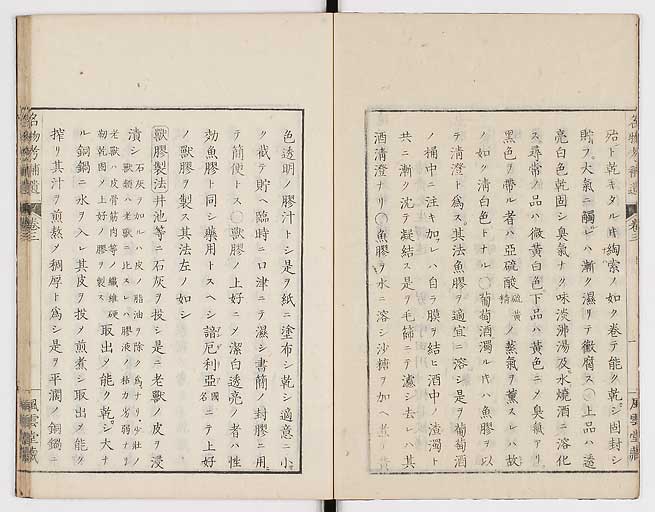 殆ト乾キタル時綯索ノ如ク巻テ能ク乾シ固封シ
貯フ大氣ニ觸レハ漸ク濕リテ黴腐ス○上品ハ透
亮白色乾固シ臭氣ナク味淡沸湯及水燒酒ニ溶化
ス尋常ノ品ハ微黄白色下品ハ黄色ニメ臭氣アリ
黑色ヲ帶ル者ハ亞硫酸硫黄精ノ蒸氣ヲ薫スレハ故
ノ如ク清白色トナル○葡萄酒濁ル時ハ魚膠ヲ以
テ清澄ト爲ス其法魚膠ヲ適宜ニ溶シ是ヲ葡萄酒
ノ桶中ニ注キ加フレハ自ラ膜ヲ結ヒ酒中ノ渣濁ト
共ニ漸ク沈テ凝結ス是ヲ毛篩ニテ濾シ去レハ其
酒清澄ナリ○魚膠ヲ水ニ溶シ沙糖ヲ加ヘ煮
色透明ノ膠汁トシ是ヲ紙ニ塗布シ乾シ適意ニ小
ク截テ貯ヘ臨時ニ口津ニテ濕シ書簡ノ封膠ニ用
テ簡便トス○獸膠ノ上好ニメ潔白透亮ノ者ハ性
効魚膠ト同シ藥用トスヘシ諳厄利亞國名ニテ上好
ノ獸膠ヲ製ス其法左ノ如シ
獸膠製法 井池等ニ石灰ヲ投シ是ニ老獸ノ皮ヲ浸
漬シ石灰ヲ加ルハ皮ノ脂油ヲ除ク爲ナリ少壯ノ獸類ハ老獸ニ比スレハ膠液ノ粘力劣弱ナリ
老獸ハ皮骨筋肉等ノ纖維硬靭乾固メ上好ノ膠ヲ製ス取出ノ能ク乾シ大ナ
ル銅鍋ニ水ヲ入レ其皮ヲ投メ煎煮シ取出メ能ク
搾リ其汁ヲ煎熬メ稠厚ト爲シ是ヲ平濶ノ銅鍋ニ
名物考補遺
卷三
風雲堂藏